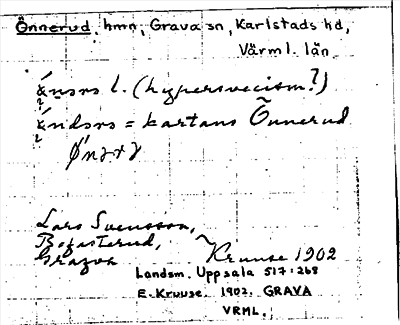 Önnerud, hmn, Grava sn, Karlstads hd,
Värml. län.
l. (hypersvecism?)
= kartans Önnerud
Lars Svensson,
Kruuse 1902
Landsm. Uppsala 517:268
E. Kruuse. 1902. GRAVA
VRML.